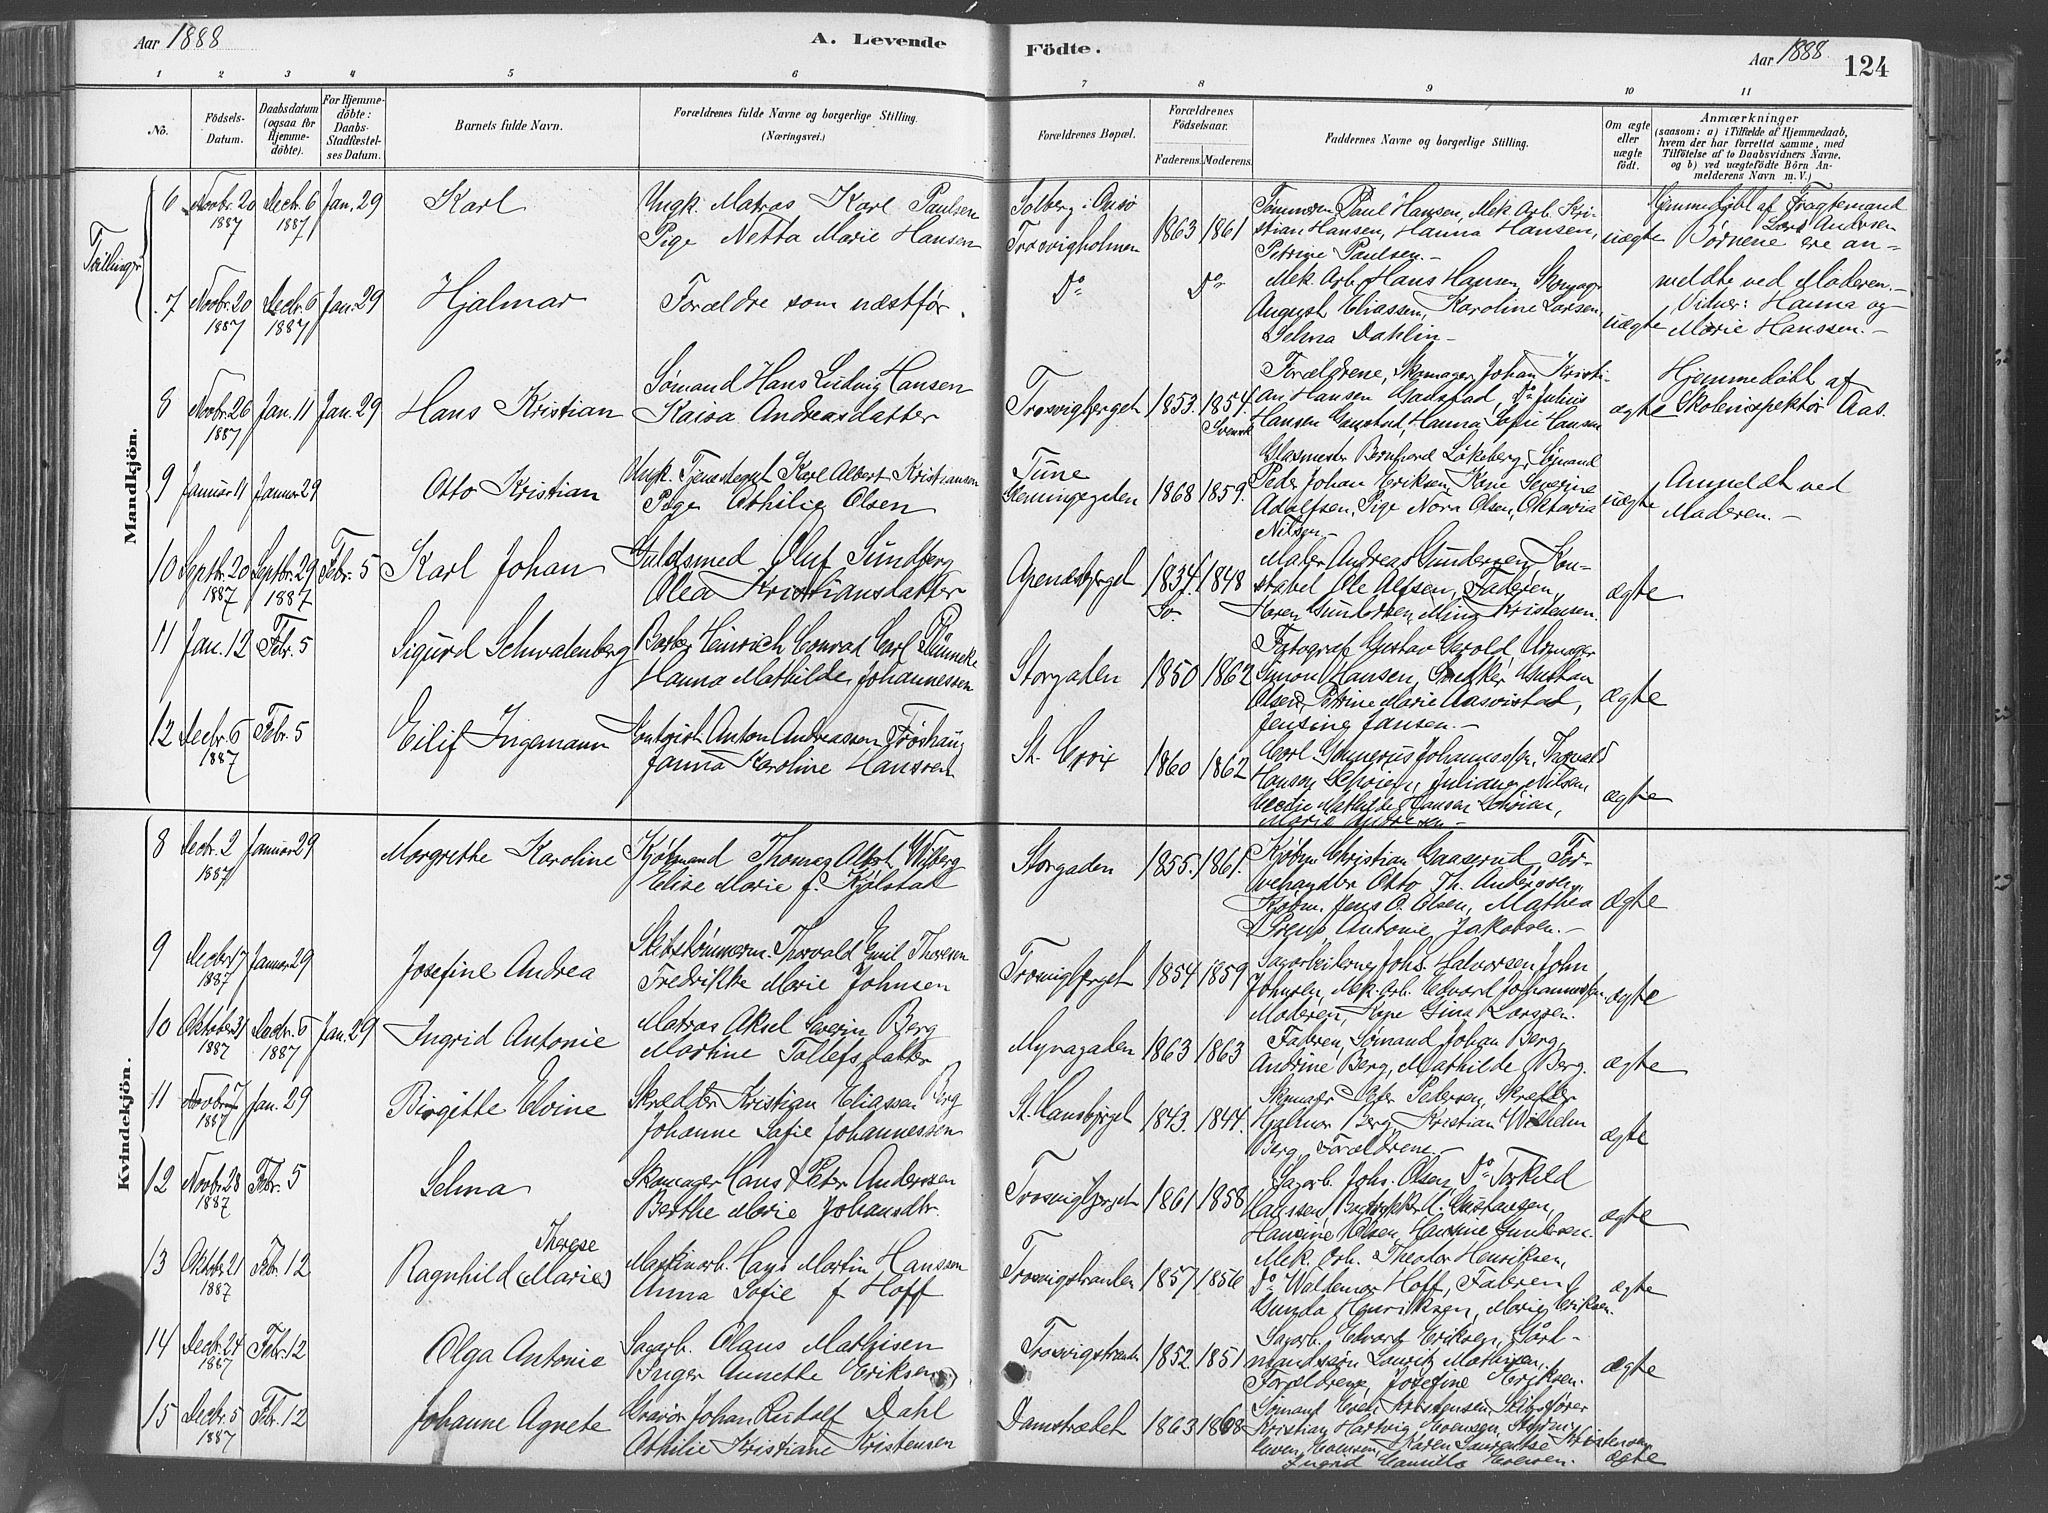 Aar 1888
A. Levende
Födte.
Aar 1888.
124
1 2 3 4 5 6 7 8 9 10 11
No.
Födsels-
Datum.
Daabsdatum
(ogsaa for
Hjemme-
döbte).
For Hjemme-
döbte:
Daabs-
Stadfæstel-
ses Datum.
Barnets fulde Navn.
Forældrenes fulde Navne og borgerlige Stilling.
(Næringsvei.)
Forældrenes Bopæl.
Forældrenes
Födselsaar.
Faderens. Moderens.
Faddernes Navne og borgerlige Stilling.
Om ægte
eller
uægte
födt.
Anmærkninger
(saasom: a) i Tilfælde af Hjemmedaab,
hvem der har forrettet samme, med
Tilföielse af to Daabsvidners Navne,
og b) ved uægtefödte Börn An-
melderens Navn m. V.)
Mandkjön.
Tvillinger
6 Novbr. 20 1887 Decb. 6 1887 Jan. 29 Karl
Ungk. Matros Karl Paulsen
Pige Netta Marie Hansen
Solberg i Onsø
Trosvigholmen
1863 1861
Tømmerm. Paul Hansen, Mek. Arb. Kri-
stian Hansen, Hanna Hansen,
Petrine Paulsen.-
uægte
Hjemmedøbt af Fragtemand
Andersen
Børnene ere an-
7 Novbr. 20 1887 Decbr. 6 1887 Jan. 29 Hjalmar
Forældre som næstfør.
Do Do
Mek. Arb. Hans Hansen, Skomag.
August Eliassen, Karoline Larsen,
Selma Dahlin-
uægte
meldte ved Moderen.-
Vidner: Hanna og
Marie Hanssen.-
8 Novbr. 26 1887 Jan. 11 Jan. 29 Hans Kristian
Sømand Hans Ludvig Hansen
Kaisa Andreasdatter
Trosvigberget 1853. 1854. Svensk
Forældrene, Skomager Johan Kristi-
an Hansen Gaustad, Do Julius
Hansen Gaustad, Hanna Sofie Hansen
ægte
Hjemmedøbt af
Skoleinspektør Aas.
9 Januar 11 Januar 29 Otto Kristian
Ungk. Tjenestegut Karl Albert Kristiansen
Pige Othilie Olsen
Tune
Glemmingegaden
1868 1859.
Glasmester Bernhard Løkeberg, Sømand
Peder Johan Eriksen, Kone Severine
Adolfsen, Pige Nora Olsen, Oktavia
Nilsen.-
uægte
Anmeldt ved
Moderen.-
10 Septbr. 20 1887 Septbr. 29 1887 Febr. 5 Karl Johan
Guldsmed Oluf Sundberg
Olea Kristiansdatter
Apenæsbjerget 1834. 1848
Maler Andreas Gundersen, Kon-
stabel Ole Olsen, Faderen,
Karen Gundersen, Mina Kristensen.
ægte
11 Jan. 12 Febr. 5 Sigurd Schwalenberg
Barber Heinrich Conrad Carl Pünneke
Hanna Mathilde Johannessen
Storgaden 1850 1862
Fotograf Gustav Herold Urmager
Simon Hansen, Snedker Gustav
Olsen, Petrine Marie Aasvistad,
Jensine Jansen.-
ægte
12 Decbr. 6 1887 Febr. 5 Eilif Ingemann
Kontorist Anton Andreassen Frøshaug
Janna Karoline Hansen
St. Croix 1860 1862
Carl Gunnerius Johannessen, Thorvald
Hanson, Juliane Nilsen,
Mathilde Hansen
Marie Andresen-
ægte
Kvindekjön.
8 Decbr. 2 1887 Januar 29 Margrethe Karoline
Kjøbmand Thomas Albert Wiberg
Elise Marie f. Kjølstad
Storgaden 1855. 1861.
Kjøbm. Christian Gaaserud, Far-
vehandler Otto Th. Anderssen,
Kjøbm. Jens O. Olsen, Mathea
Antonie Jakobsen.-
ægte
9 Decbr. 17 1887 Januar 29 Josefine Andrea
Skibstømmerm. Thorvald Emil Thoresen
Fredrikke Marie Johnsen
Trosvigberget 1854 1859
Sagarbeiderne Johs. Halvorsen, John
Johnsen, Mek. Arb. Edvard Johannessen,
Moderen, Kone Gina Larssen.
ægte
10 Oktober 31 1887 Decbr. 6 1887 Jan. 29 Ingrid Antonie
Matros Aksel Severin Berg
Martine Tollefsdatter
Myragaden 1863 1863
Faderen, Sømand Johan Berg,
Andrine Berg, Mathilde Berg.
ægte
11 Novbr. 7 1887 Jan. 29 Birgitte Elvine
Skrædder Kristian Eliassen Berg
Johanne Sofie Johannessen
St. Hansbjerget 1843. 1844.
Skomager Peder Pedersen, Skrædder
Hjalmar Berg, Kristian Wilhelm
Berg, Forældrene.-
ægte
12 Novbr. 28 1887 Febr. 5 Selma
Skomager Hans Peter Anderssen
Berthe Marie Johansdtr.
Trosvigberget 1861 1858
Sagarb. Johs. Olsen, Do Torkild
Hanssen, Gustavsen,
Hansine Olsen, Gundersen.
ægte
13 Oktober 21 1887 Febr. 12 Ragnhild (Marie) Therese
Maskinarb. Hans Martin Hanssen
Anna Sofie f Hoff
Trosvigstranden 1857 1856
Mek. Arb. Theodor Henriksen,
Do Waldemar Hoff, Faderen,
Gunda Henriksen, Marie Eriksen
ægte
14 Decbr. 24 1887 Febr. 12 Olga Antonie
Sagarb. Olaus Mathisen
Inger Annette Eriksen
Trosvigstranden 1852 1851
Sagarb. Edvard Eriksen, Gård-
mandssøn Lauritz Mathisen,
Forældrene, Josefine Eriksen.
ægte
15 Decbr. 5 1887 Febr. 12 Johanne Agnete
Gravør Johan Rudolf Dahl
Othilie Kristiane Kristensen
Damstrædet 1863 1868
Sømand Even Kristensen, Skibsfører
Kristian Hartvig Evensen, Styrm.
Even Evensen, Karen Laurentse Kristensen,
Ingrid Camilla Evensen.
ægte